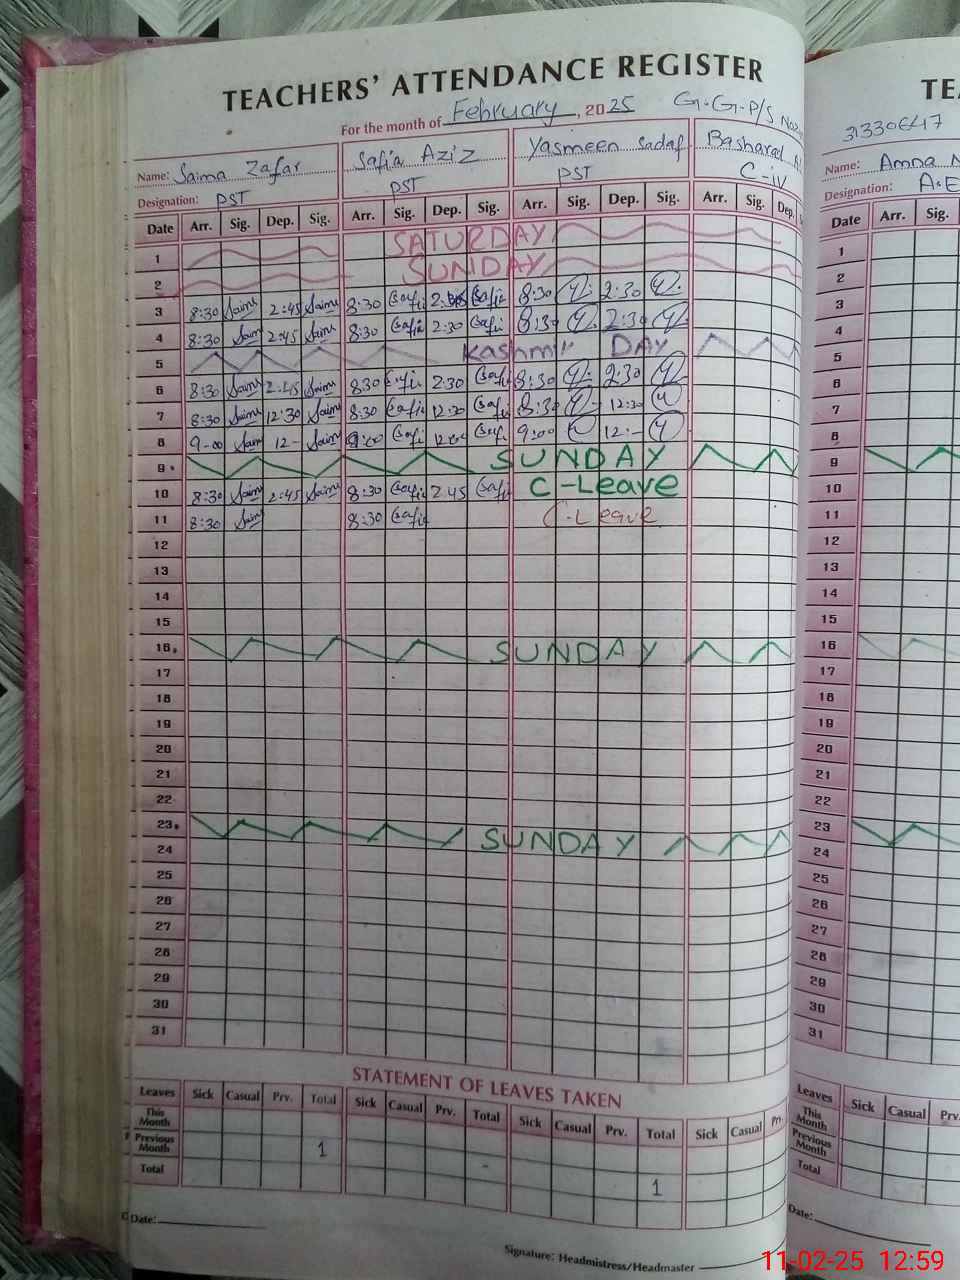 TEACHERS' ATTENDANCE REGISTER
For the month of February, 2025 G.G.P/S
Name: Saima Zafar Safia Aziz Yasmeen Sadaf Basharad
Designation: PST PST PST C-iv
Date Arr. Sig. Dep. Sig. Arr. Sig. Dep. Sig. Arr. Sig. Dep. Sig. Arr. Sig. Dep.
1 SATURDAY
2 SUNDAY
3 8:30 Saima 2:45 Saima 8:30 Safi Safi 8:30 2:30
4 8:30 Saima 2:45 Saima 8:30 Safi 2:30 Safi 8:30 2:30
5 Kashmir DAY
6 8:30 Saima 2:45 Saima 8:30 Safi 2:30 Safi 8:30 2:30
7 8:30 Saima 12:30 Saima 8:30 Safi 12:30 Safi 8:30 12:30
8 9-00 Saim 12- Saim 9:00 Safi 12:00 Safi 9:00 12:-
9 SUNDAY
10 8:30 Saima 2:45 Saima 8:30 Safi 2:45 Safi C-Leave
11 8:30 Saima 8:30 Safi C-Leave
12
13
14
15
16 SUNDAY
17
18
19
20
21
22
23 SUNDAY
24
25
26
27
28
29
30
31
STATEMENT OF LEAVES TAKEN
Leaves Sick Casual Prv. Total Sick Casual Prv. Total Sick Casual Prv. Total Sick Casual
This Month
Previous Month 1
Total 1
Date:
Signature: Headmistress/Headmaster
31330647
Name: Amna
Designation: A.E
Date Arr. Sig.
1
2
3
4
5
6
7
8
9
10
11
12
13
14
15
16
17
18
19
20
21
22
23
24
25
26
27
28
29
30
31
Leaves Sick Casual Prv.
This Month
Previous Month
Total
Date:
11-02-25 12:59